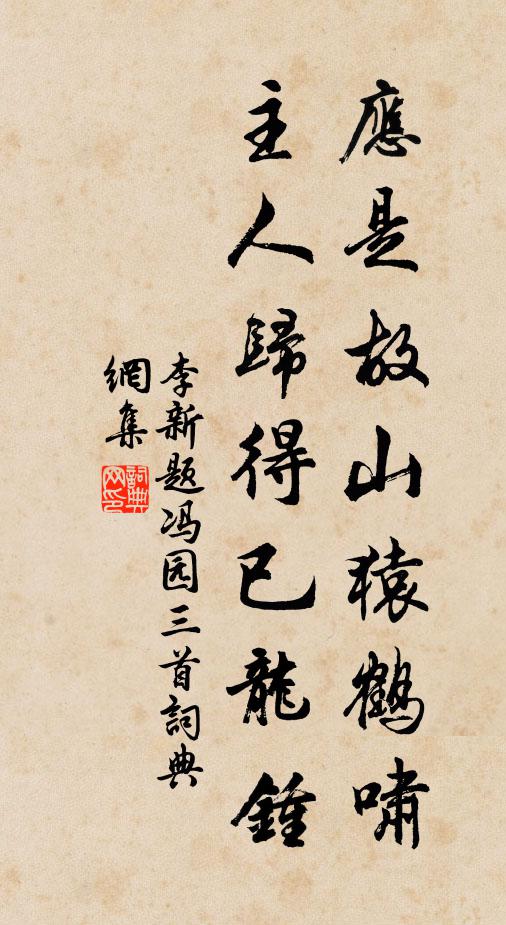 應是故山猿鶴嘯
主人歸得已龍鍾
李新题冯园三首詞典
網集
詞典
网印